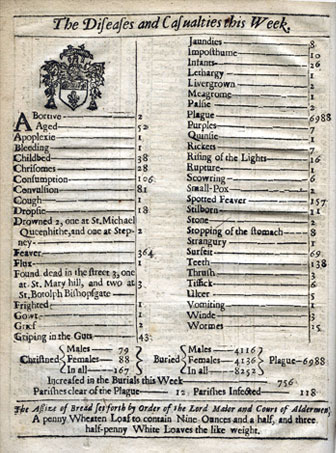 The Diseases and Casualties this Week.
ABortive 2
Aged 52
Apoplexie 1
Bleeding 1
Childbed 38
Chrisomes 28
Consumption 106
Convulsion 81
Cough 1
Dropsie 18
Drowned 2, one at St. Michael
Queenhithe, and one at Step-
ney
Feaver 364
Flux
Found dead in the street 3, one
at St. Mary hill, and two at
St. Botolph Bishopsgate 3
Frighted 1
Gowt 1
Grief
Griping in the Guts 43
Jaundies 8
Imposthume 10
Infants 26
Lethargy 1
Livergrown
Meagrome 1
Palsie 2
Plague 6988
Purples
Quinsie
Rickets
Rising of the Lights 16
Rupture
Scowring
Small-Pox
Spotted Feaver 157
Stilborn 11
Stone 2
Stopping of the stomach 8
Strangury 1
Surfeit 69
Teeth 138
Thrush 3
Tissick 6
Ulcer
Vomiting
Winde
Wormes 15
Christned Males 79 Females 88 In all 167
Buried Males 4116 Females 4136 In all 8252 Plague 6988
Increased in the Burials this Week 756
Parishes clear of the Plague 12 Parishes Infected 118
The Assize of Bread set forth by Order of the Lord Maior and Court of Aldermen,
A penny Wheaten Loaf to contain Nine Ounces and a half, and three
half-penny White Loaves the like weight.